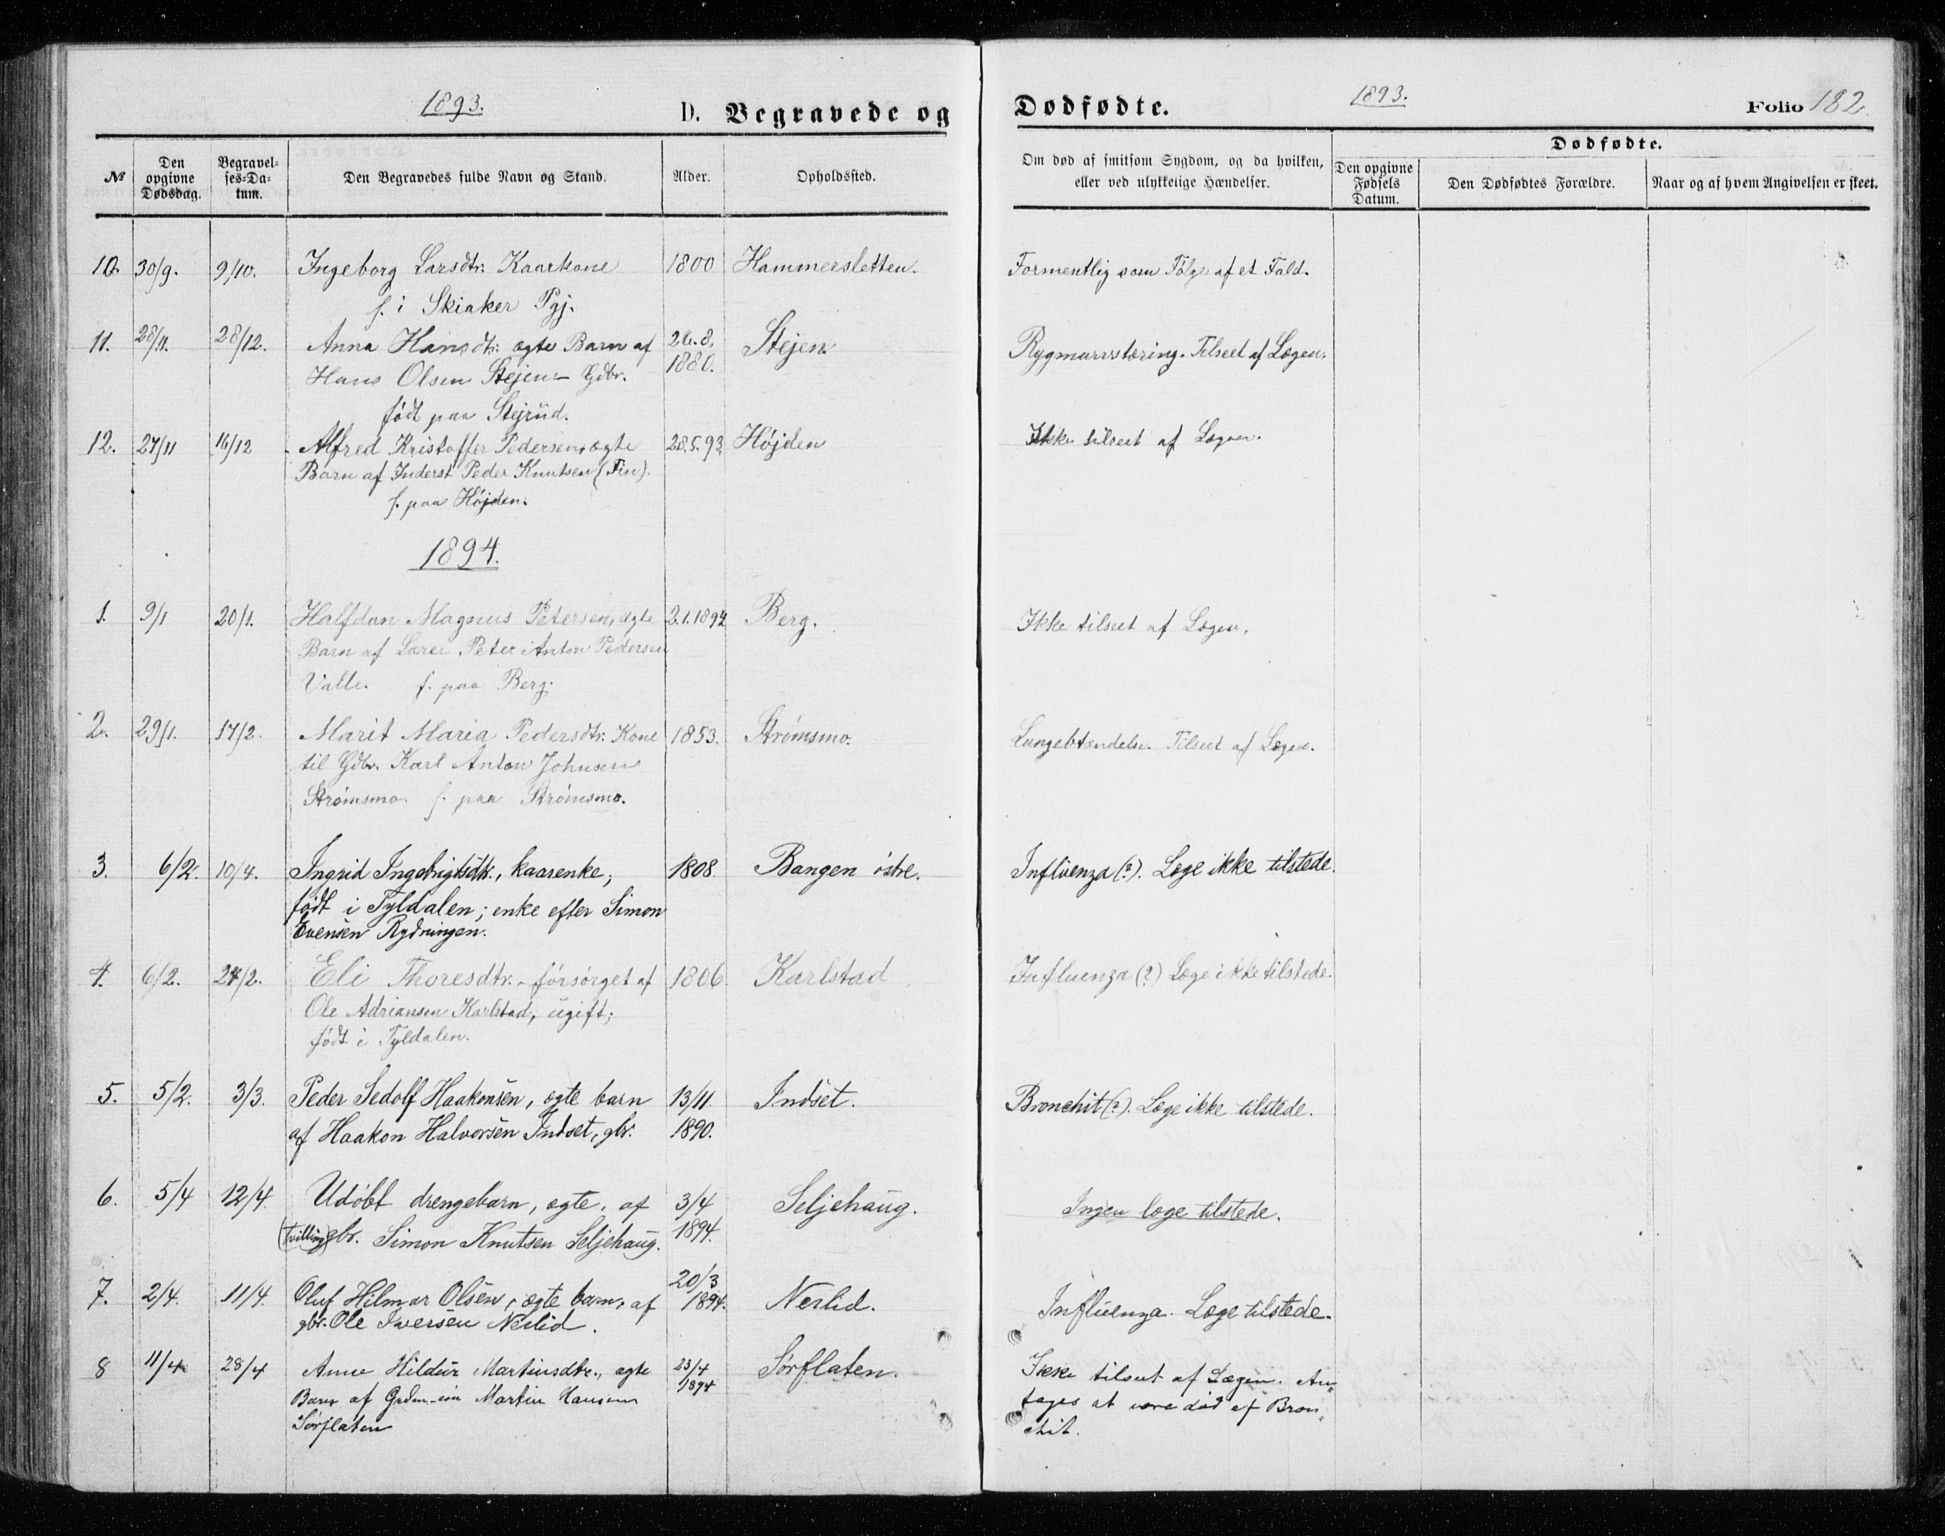 1893. D. Begravede og
Dødfødte. 1893. Folio 182.
№ Den opgivne Dødsdag. Begravelses=Datum. Den Begravedes fulde Navn og Stand. Alder. Opholdssted.
Om død af smitsom Sygdom, og da hvilken, eller ved ulykkelige Hændelser. Dødfødte. Den opgivne Fødsels Datum. Den Dødfødtes Forældre. Naar og af hvem Angivelsen er skeet.
10. 30/9. 9/10. Ingeborg Larsdtr. Kaarkone 1800 Hammersletten. Formentlig som Følge af et Fald.
f. i Skiaker Pgj.
11. 28/11. 28/12. Anna Hansdtr. ægte Barn af 26.8. Stejen Rygmarvstæring. Tilseet af Lægen.
Hans Olsen Stejen Gdbr. 1880.
født paa Stejrud.
12. 27/11 16/12 Alfred Kristoffer Pedersen, ægte 28.5.93 Højden Ikke tilseet af Lægen.
Barn af Inderst Peder Knutsen (Fin).
f. paa Højden.
1894.
1. 9/1 20/1. Halfdan Magnus Petersen, ægte 2.1.1894 Berg. Ikke tilseet af Lægen.
Barn af Lærer Peter Anton Pedersen
Valle. f. paa Berg.
2. 29/1. 17/2. Marit Maria Pedersdtr. Kone 1853. Strømsmo. Lungebtændelse. Tilseet af Lægen.
til Gdbr. Karl Anton Johnsen
Strømsmo. f. paa Strømsmo.
3. 6/2. 10/4. Ingrid Ingebrigtsdtr., kaarenke; 1808. Bangen østre. Influenza (?). Læge ikke tilstede.
født i Tyldalen; enke efter Simon
Evensen Rydningen.
4. 6/2. 24/2. Eli Thoresdtr. - forsørget af 1806. Karlstad Influenza (?) Læge ikke tilstede.
Ole Adriansen Karlstad, ugift;
født i Tyldalen.
5. 5/2. 3/3. Peder Sedolf Haakonsen, ægte barn 13/11. Indset. Bronchit (?). Læge ikke tilstede.
af Haakon Halvorsen Indset, gbr. 1890.
6. 5/4 12/4. Udøbt drengebarn, ægte, af 3/4 Seljehaug. Ingen læge tilstede.
(tvilling) gbr. Simon Knutsen Seljehaug. 1894.
7. 2/4. 11/4. Oluf Hilmar Olsen, ægte barn, af 20/3 1894. Neslid. Influenza. Læge tilstede.
gbr. Ole Iversen Neslid.
8 11/4 28/4 Anne Hildur Martinsdtr., ægte 23/4 1894 Sørflaten. Ikke tilseet af Lægen. An-
Barn af Martin Hansen tages at være død af Bron-
Sørflaten chit.